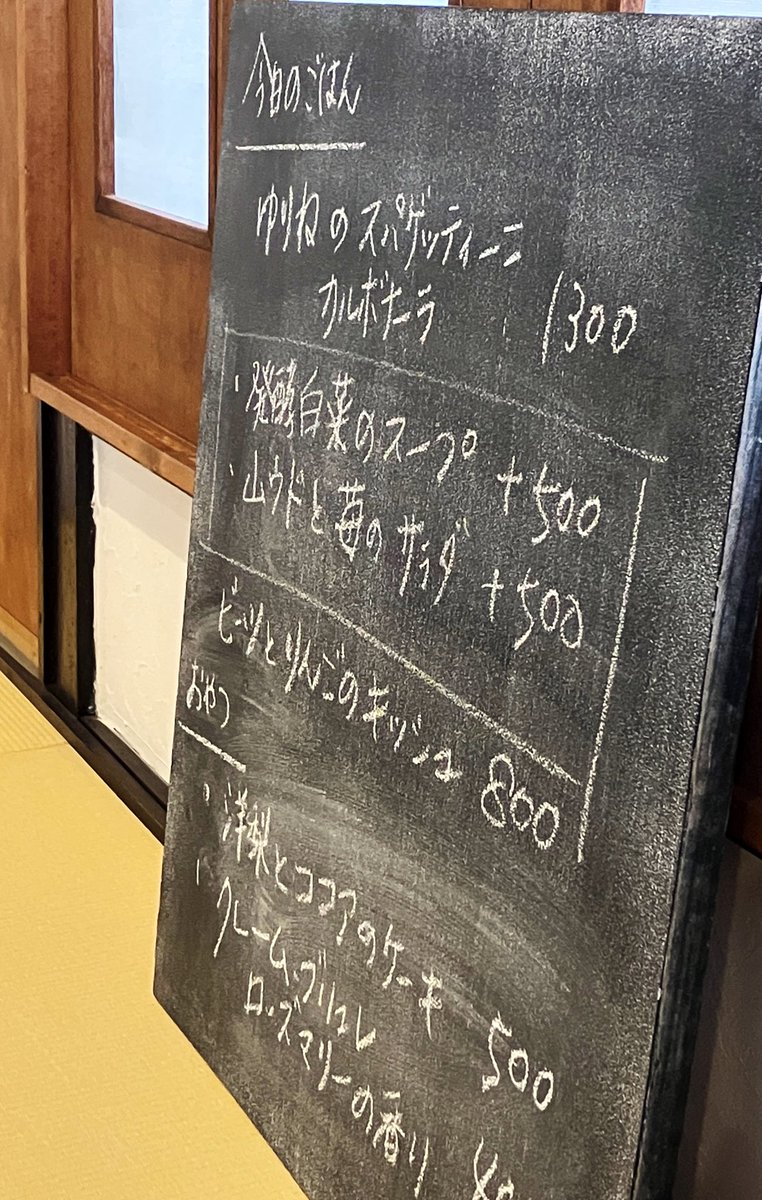 今日のごはん
ゆりねのスパゲッティーニ
カルボナーラ 1300
・発酵白菜のスープ +500
・山ウドと苺のサラダ +500
ビーツとりんごのキッシュ 800
おやつ
・洋梨とココアのケーキ 500
・クレームブリュレ
ローズマリーの香り